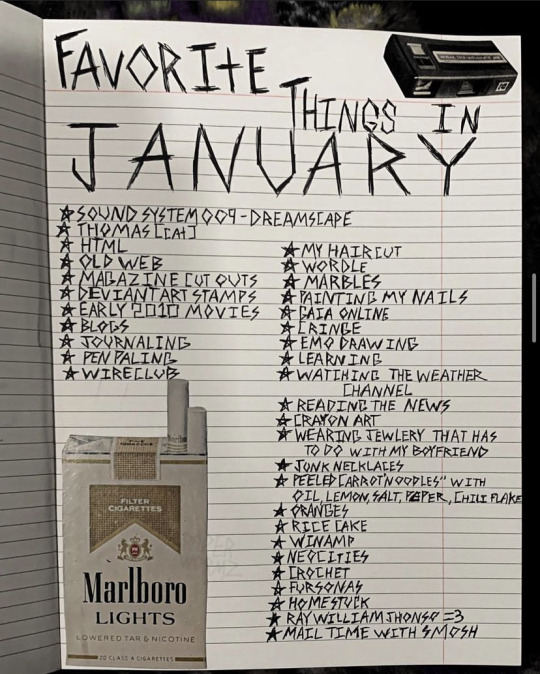 FAVORITE
THINGS IN
JANUARY
☆ SOUND SYSTEM 009 - DREAMSCAPE
☆ THOMAS [CAT]
☆ HTML
☆ OLD WEB
☆ MAGAZINE CUT OUTS
☆ DEVIANTART STAMPS
☆ EARLY 2010 MOVIES
☆ BLOGS
☆ JOURNALING
☆ PEN PALING
☆ WIRECLUB
☆ MY HAIRCUT
☆ WORDLE
☆ MARBLES
☆ PAINTING MY NAILS
☆ GAIA ONLINE
☆ CRINGE
☆ EMO DRAWING
☆ LEARNING
☆ WATCHING THE WEATHER
CHANNEL
☆ READING THE NEWS
☆ CRAYON ART
☆ WEARING JEWLERY THAT HAS
TO DO WITH MY BOYFRIEND
☆ JUNK NECKLACES
☆ PEELED CARROT "NOODLES" WITH
OIL, LEMON, SALT, PEPER, CHILI FLAKE
☆ ORANGES
☆ RICE CAKE
☆ WINAMP
☆ NEOCITIES
☆ CROCHET
☆ FURSONAS
☆ HOMESTUCK
☆ RAY WILLIAM JHONSO =3
☆ MAIL TIME WITH SMOSH
FILTER
CIGARETTES
Marlboro
LIGHTS
LOWERED TAR & NICOTINE
20 CLASS A CIGARETTES